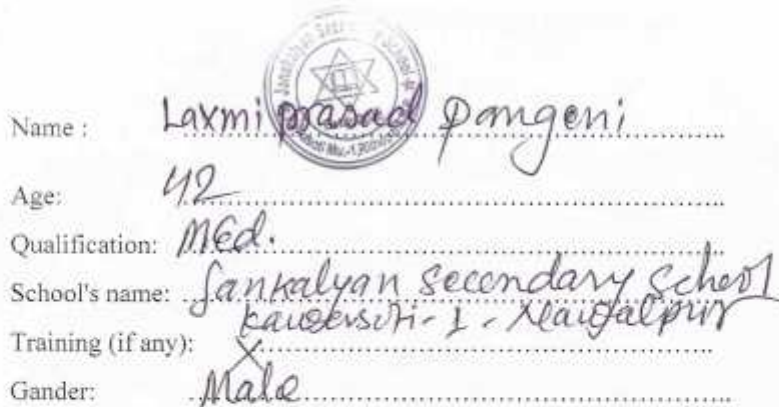 Name : Laxmi prasad pangeni
Age: 42
Qualification: MEd.
School's name: Jankalyan Secondary School
Training (if any): X
Gander: Male